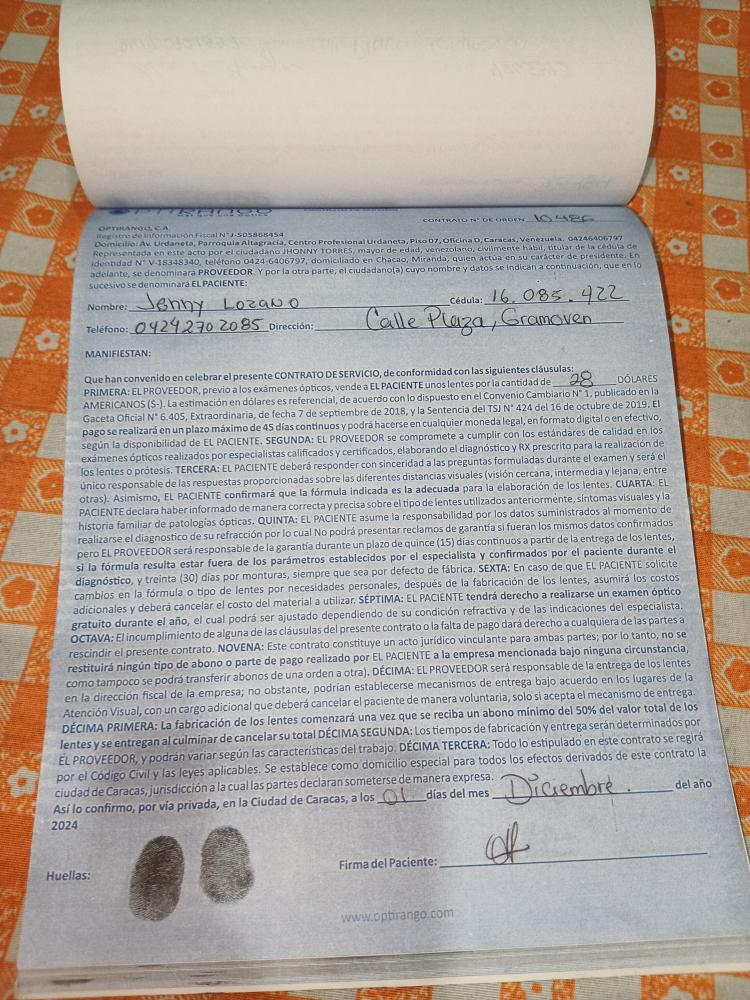 OPTIRANGO
CONTRATO N° DE ORDEN 10486
OPTIRANGO, C.A.
Registro de Información Fiscal N° J-505868454
Domicilio: Av. Urdaneta, Parroquia Altagracia, Centro Profesional Urdaneta, Piso 07, Oficina D, Caracas, Venezuela. 04246406797
Representada en este acto por el ciudadano JHONNY TORRES, mayor de edad, venezolano, civilmente hábil, titular de la cédula de
identidad N° V-18348340, teléfono 0424-6406797, domiciliado en Chacao, Miranda, quien actúa en su carácter de presidente. En
adelante, se denominará PROVEEDOR. Y por la otra parte, el ciudadano(a) cuyo nombre y datos se indican a continuación, que en lo
sucesivo se denominará EL PACIENTE:
Nombre: Jenny Lozano Cédula: 16.085.422
Teléfono: 04242702085 Dirección: Calle Plaza, Gramoven
MANIFIESTAN:
Que han convenido en celebrar el presente CONTRATO DE SERVICIO, de conformidad con las siguientes cláusulas:
PRIMERA: EL PROVEEDOR, previo a los exámenes ópticos, vende a EL PACIENTE unos lentes por la cantidad de 28 DÓLARES
AMERICANOS ($-). La estimación en dólares es referencial, de acuerdo con lo dispuesto en el Convenio Cambiario N° 1, publicado en la
Gaceta Oficial N° 6.405, Extraordinaria, de fecha 7 de septiembre de 2018, y la Sentencia del TSJ N° 424 del 16 de octubre de 2019. El
pago se realizará en un plazo máximo de 45 días continuos y podrá hacerse en cualquier moneda legal, en formato digital o en efectivo,
según la disponibilidad de EL PACIENTE. SEGUNDA: EL PROVEEDOR se compromete a cumplir con los estándares de calidad en los
exámenes ópticos realizados por especialistas calificados y certificados, elaborando el diagnóstico y RX prescrito para la realización de
los lentes o prótesis. TERCERA: EL PACIENTE deberá responder con sinceridad a las preguntas formuladas durante el examen y será el
único responsable de las respuestas proporcionadas sobre las diferentes distancias visuales (visión cercana, intermedia y lejana, entre
otras). Asimismo, EL PACIENTE confirmará que la fórmula indicada es la adecuada para la elaboración de los lentes. CUARTA: EL
PACIENTE declara haber informado de manera correcta y precisa sobre el tipo de lentes utilizados anteriormente, síntomas visuales y la
historia familiar de patologías ópticas. QUINTA: EL PACIENTE asume la responsabilidad por los datos suministrados al momento de
realizarse el diagnostico de su refracción por lo cual No podrá presentar reclamos de garantía si fueran los mismos datos confirmados
pero EL PROVEEDOR será responsable de la garantía durante un plazo de quince (15) días continuos a partir de la entrega de los lentes,
si la fórmula resulta estar fuera de los parámetros establecidos por el especialista y confirmados por el paciente durante el
diagnóstico, y treinta (30) días por monturas, siempre que sea por defecto de fábrica. SEXTA: En caso de que EL PACIENTE solicite
cambios en la fórmula o tipo de lentes por necesidades personales, después de la fabricación de los lentes, asumirá los costos
adicionales y deberá cancelar el costo del material a utilizar. SÉPTIMA: EL PACIENTE tendrá derecho a realizarse un examen óptico
gratuito durante el año, el cual podrá ser ajustado dependiendo de su condición refractiva y de las indicaciones del especialista.
OCTAVA: El incumplimiento de alguna de las cláusulas del presente contrato o la falta de pago dará derecho a cualquiera de las partes a
rescindir el presente contrato. NOVENA: Este contrato constituye un acto jurídico vinculante para ambas partes; por lo tanto, no se
restituirá ningún tipo de abono o parte de pago realizado por EL PACIENTE a la empresa mencionada bajo ninguna circunstancia,
como tampoco se podrá transferir abonos de una orden a otra). DÉCIMA: EL PROVEEDOR será responsable de la entrega de los lentes
en la dirección fiscal de la empresa; no obstante, podrían establecerse mecanismos de entrega bajo acuerdo en los lugares de la
Atención Visual, con un cargo adicional que deberá cancelar el paciente de manera voluntaria, solo si acepta el mecanismo de entrega.
DÉCIMA PRIMERA: La fabricación de los lentes comenzará una vez que se reciba un abono mínimo del 50% del valor total de los
lentes y se entregan al culminar de cancelar su total DÉCIMA SEGUNDA: Los tiempos de fabricación y entrega serán determinados por
EL PROVEEDOR, y podrán variar según las características del trabajo. DÉCIMA TERCERA: Todo lo estipulado en este contrato se regirá
por el Código Civil y las leyes aplicables. Se establece como domicilio especial para todos los efectos derivados de este contrato la
ciudad de Caracas, jurisdicción a la cual las partes declaran someterse de manera expresa.
Así lo confirmo, por vía privada, en la Ciudad de Caracas, a los 01 días del mes Diciembre. del año
2024
Huellas:
Firma del Paciente:
www.optirango.com